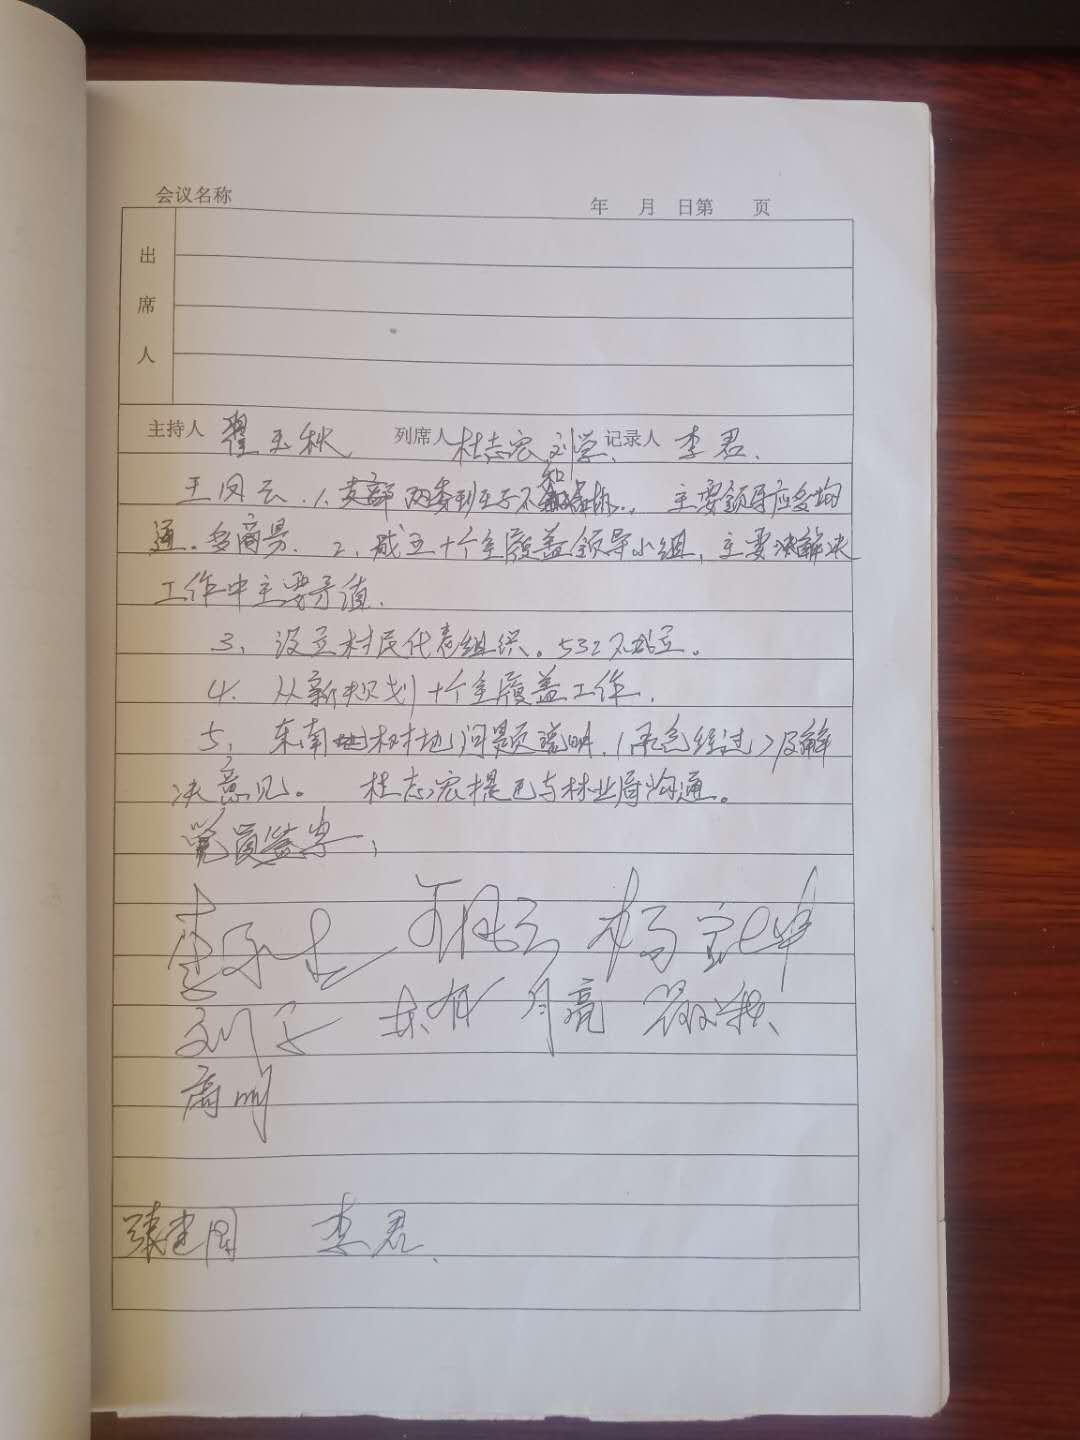 会议名称
年 月 日第 页
出席人
主持人 翟玉秋 列席人 杜志宏 刘学 记录人 李君.
王凤云.1、支部两委班子不和 主要领导应多沟
通。多商量. 2、成立十个全履盖领导小组,主要决解决
工作中主要予值.
3、设立村民代表组织。532不成立。
4. 从新规划十个全履盖工作.
5、东南 林地问题说明.(  经过)及解
决意见。 杜志宏提已与林业局沟通。
党员签字,
王凤云 杨宝坤
月亮
张建国 李君.